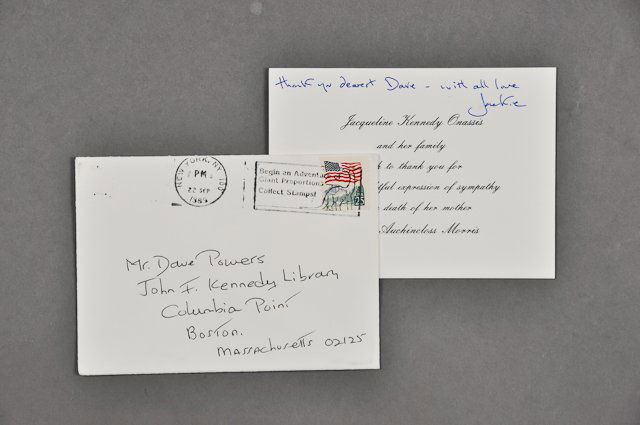 thank you dearest Dave - with all love
Jackie
Jacqueline Kennedy Onassis
and her family
to thank you for
expression of sympathy
death of her mother
Auchincloss Morris
NEW YORK, NY 100
PM
22 SEP
1989
Begin an Adventure
Giant Proportions
Collect Stamps!
25
Mr. Dave Powers
John F. Kennedy Library
Columbia Point
Boston.
Massachusetts 02125